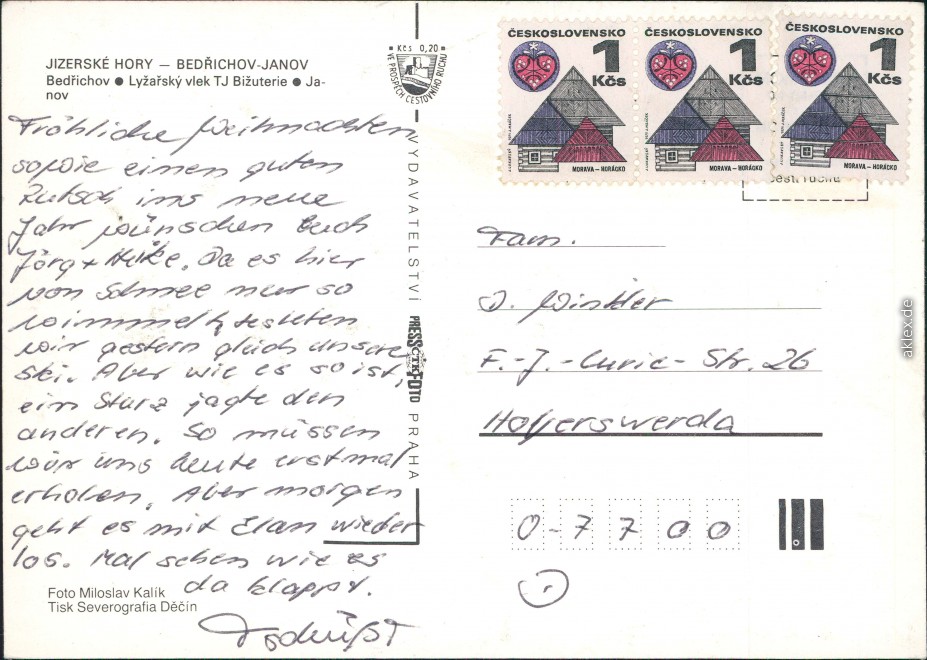 JIZERSKÉ HORY — BEDŘICHOV-JANOV
Bedřichov ● Lyžařský vlek TJ Bižuterie ● Ja-
nov
Fröhliche Weihnachten
sowie einen guten
Rutsch ins neue
Jahr wünschen Euch
Jörg + Heike. Da es hier
von Schnee nur so
wimmelt, testeten
wir gestern gleich unsere
Ski. Aber wie es so ist,
ein Sturz jagte den
anderen. So müssen
wir uns heute erstmal
erholen. Aber morgen
geht es mit Elan wieder
los. Mal sehen wie es
da klappt.
Foto Miloslav Kalík
Tisk Severografia Děčín
Kčs 0,20
VE PROSPĚCH CESTOVNÍHO RUCHU
VYDAVATELSTVÍ PRESSFOTO PRAHA
ČTK
ČESKOSLOVENSKO
1
Kčs
MORAVA – HORÁCKO
ČESKOSLOVENSKO
1
Kčs
MORAVA – HORÁCKO
ČESKOSLOVENSKO
1
Kčs
MORAVA – HORÁCKO
Fam.
J. Winkler
F.-J.-Curie-Str. 26
Hoyerswerda
0-7700
aklex.de